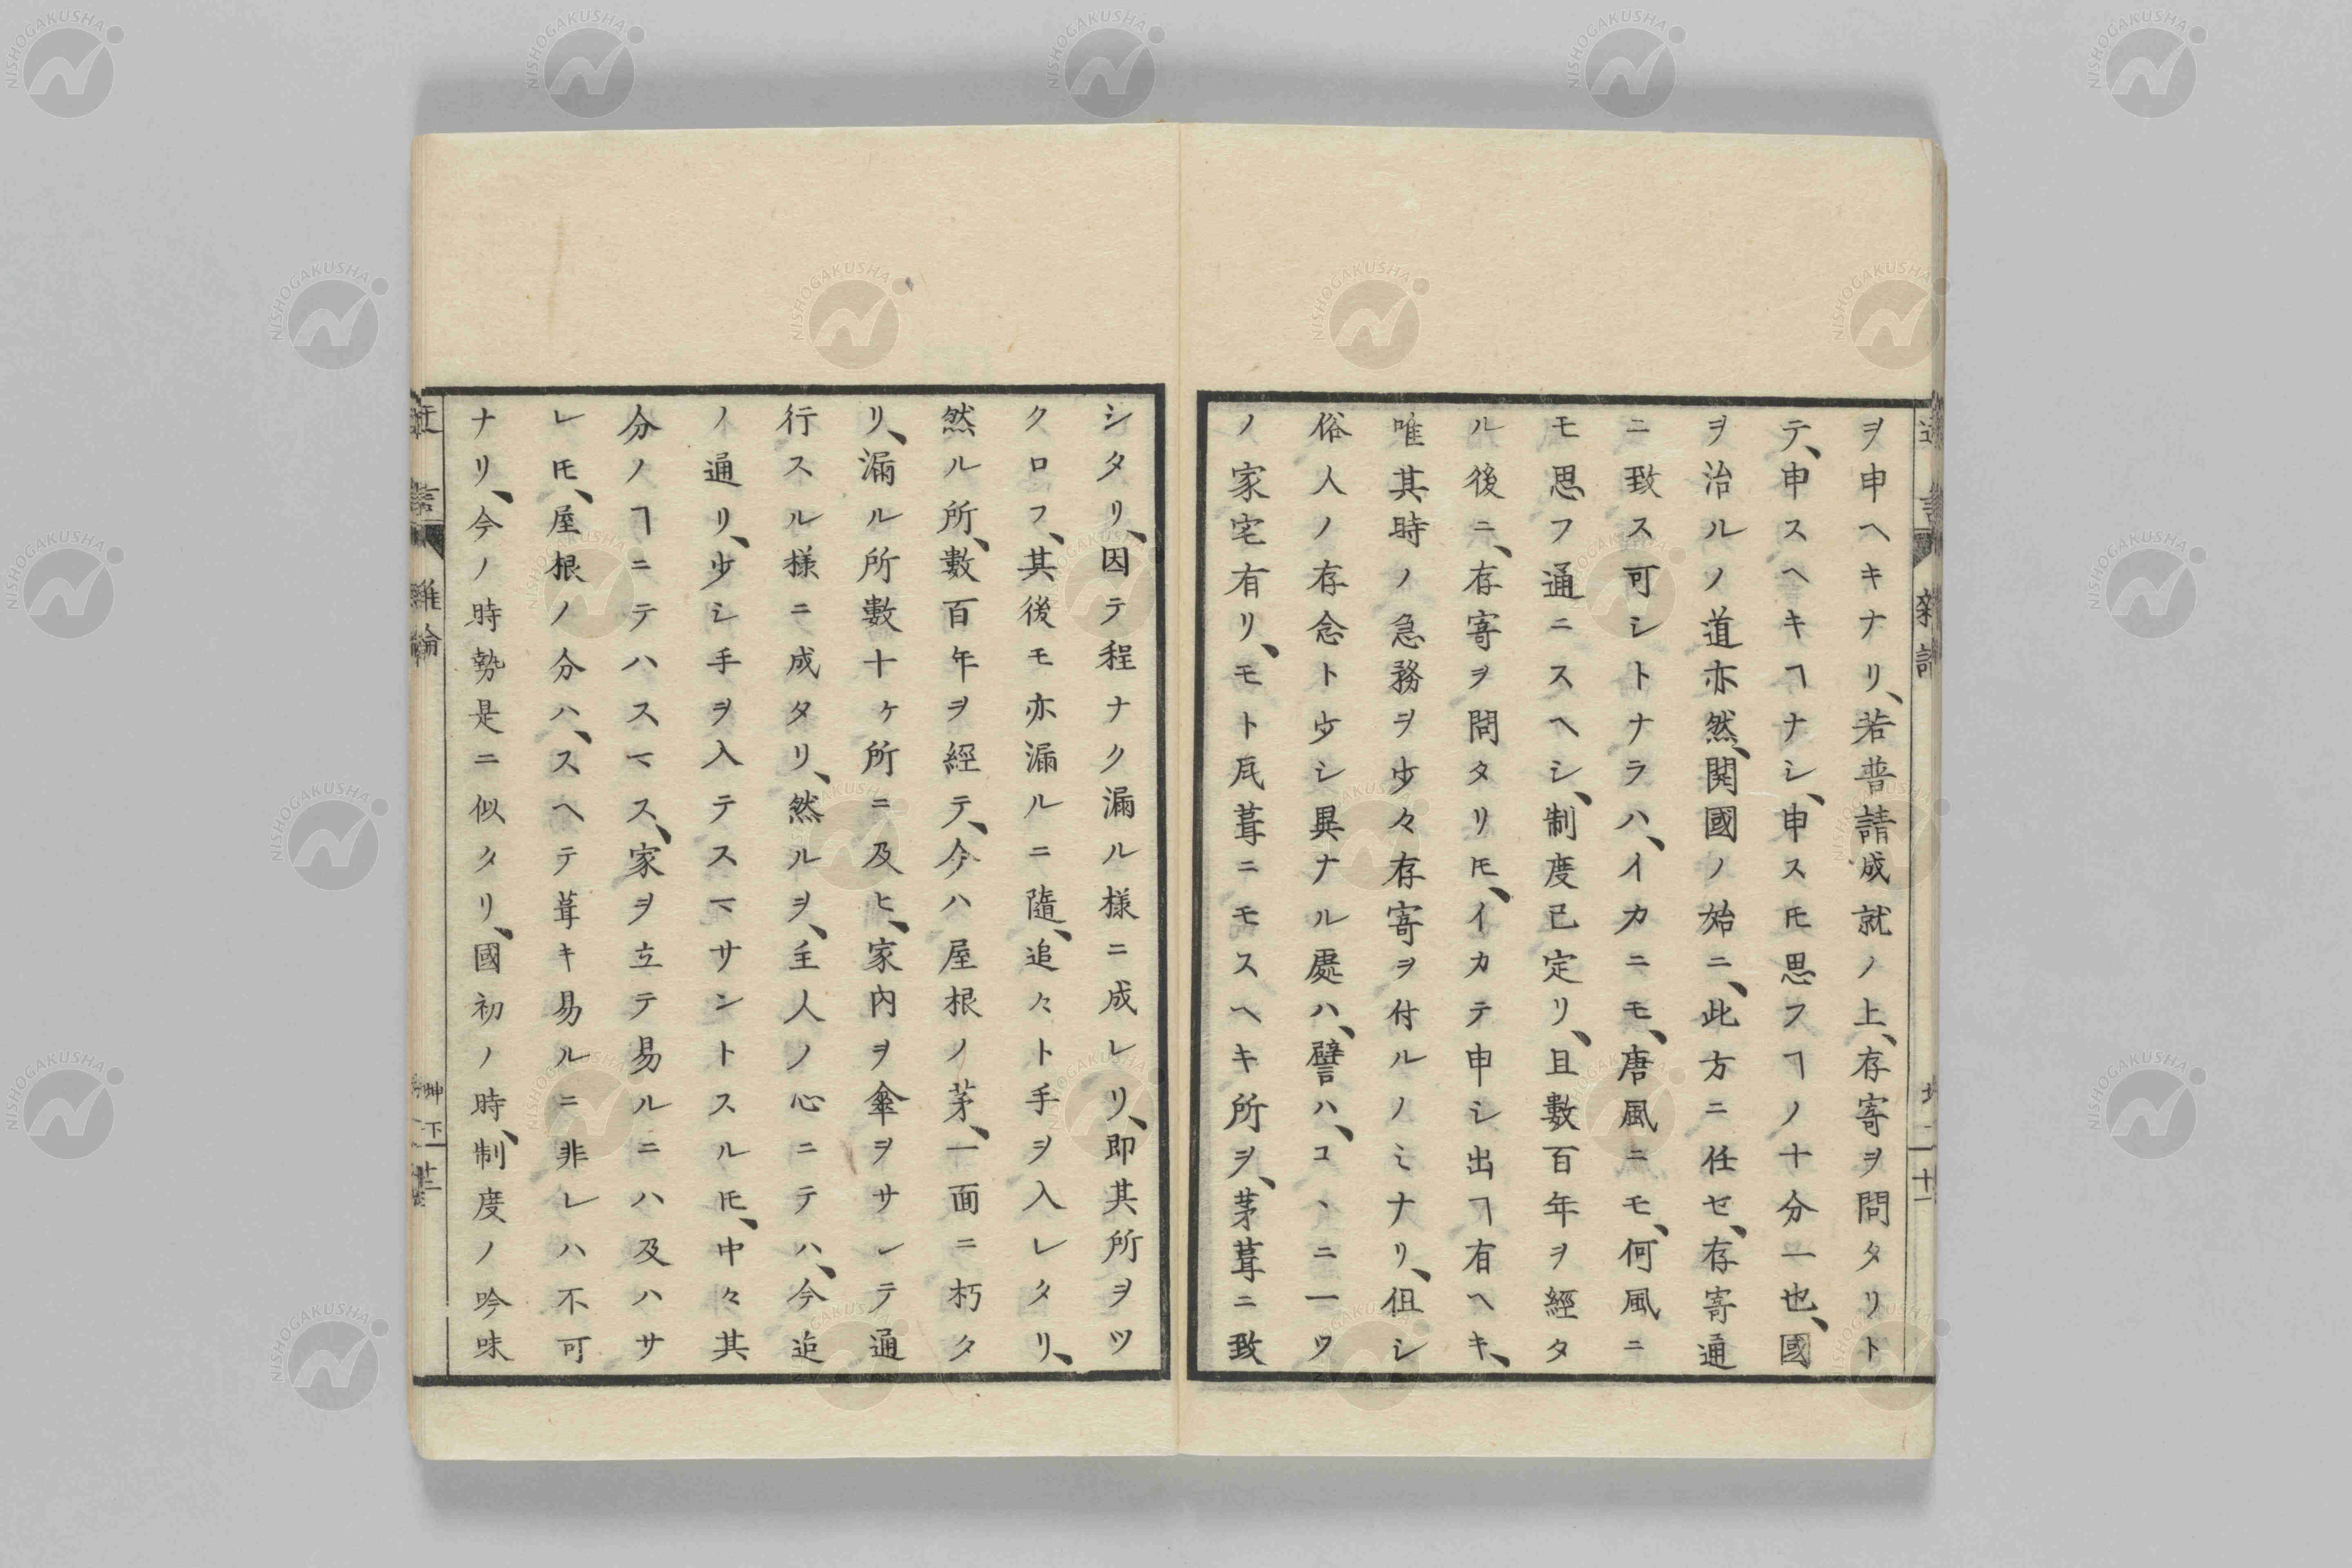 ヲ申ヘキナリ、若普請成就ノ上、存寄ヲ問タリト
テ、申スヘキヿナシ、申ス𪜈思フヿノ十分一也、國
ヲ治ルノ道亦然、開國ノ始ニ、此方ニ任セ、存寄通
ニ致ス可シトナラハ、イカニモ、唐風ニモ、何風ニ
モ思フ通ニスヘシ、制度已定リ、且數百年ヲ經タ
ル後ニ、存寄ヲ問タリ𪜈、イカテ申シ出ヿ有ヘキ、
唯其時ノ急務ヲ少々存寄ヲ付ルノミナリ、但シ
俗人ノ存念ト少シ異ナル處ハ、譬ハ、コヽニ一ツ
ノ家宅有リ、モト瓦葺ニモスヘキ所ヲ、茅葺ニ致
シタリ、因テ程ナク漏ル様ニ成レリ、即其所ヲツ
クロフ、其後モ亦漏ルニ隨、追々ト手ヲ入レタリ、
然ル所、數百年ヲ經テ、今ハ屋根ノ茅、一面ニ朽タ
リ、漏ル所數十ヶ所ニ及ヒ、家內ヲ傘ヲサシテ通
行スル様ニ成タリ、然ルヲ、主人ノ心ニテハ、今迄
ノ通リ、少シ手ヲ入テスマサントスル𪜈、中々其
分ノヿニテハスマス、家ヲ立テ易ルニハ及ハサ
レ𪜈、屋根ノ分ハ、スヘテ葺キ易ルニ非レハ不可
ナリ、今ノ時勢是ニ似タリ、國初ノ時、制度ノ吟味